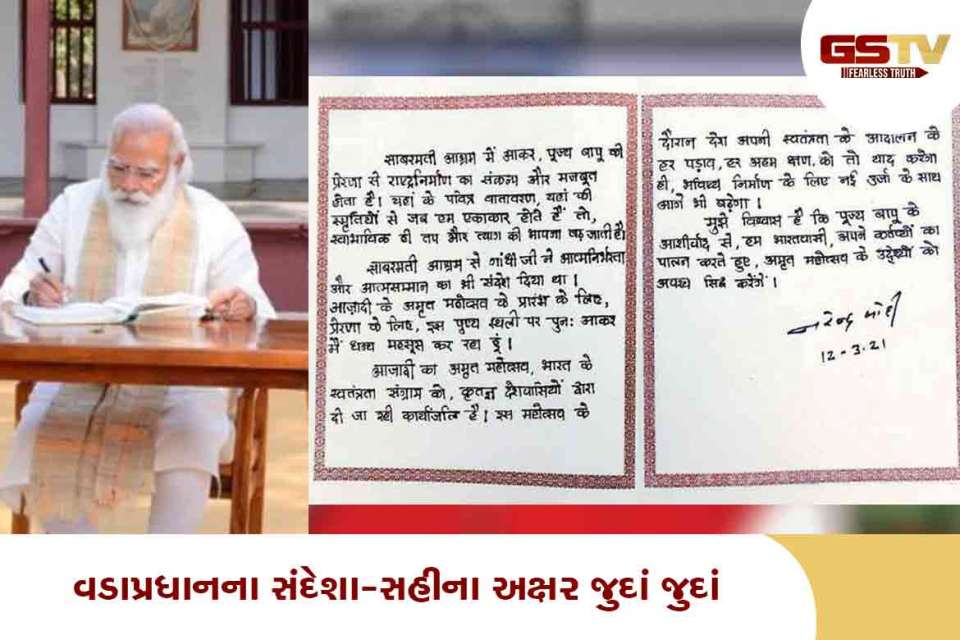 GSTV
FEARLESS TRUTH
साबरमती आश्रम में आकर, पूज्य बापू की
प्रेरणा से राष्ट्रनिर्माण का संकल्प और मजबूत
होता है। यहां के पवित्र वातावरण, यहां की
स्मृतियों से जब हम एकाकार होते हैं तो,
स्वाभाविक ही तप और त्याग की भावना बढ़ जाती है।
साबरमती आश्रम से गांधी जी ने आत्मनिर्भरता
और आत्मसम्मान का भी संदेश दिया था।
आज़ादी के अमृत महोत्सव के प्रारंभ के लिए,
प्रेरणा के लिए, इस पुण्य स्थली पर पुनः आकर
मैं धन्य महसूस कर रहा हूं।
आज़ादी का अमृत महोत्सव, भारत के
स्वतंत्रता संग्राम को, कृतज्ञ देशवासियों द्वारा
दी जा रही कार्यांजलि है। इस महोत्सव के
दौरान देश अपनी स्वतंत्रता के आंदोलन के
हर पड़ाव, हर अहम क्षण, को तो याद करेगा
ही, भविष्य निर्माण के लिए नई उर्जा के साथ
आगे भी बढ़ेगा।
मुझे विश्वास है कि पूज्य बापू के
आशीर्वाद से, हम भारतवासी, अपने कर्तव्यों का
पालन करते हुए, अमृत महोत्सव के उद्देश्यों को
अवश्य सिद्ध करेंगे।
નરેન્દ્ર મોદી
12-3-21
વડાપ્રધાનના સંદેશા-સહીના અક્ષર જુદાં જુદાં